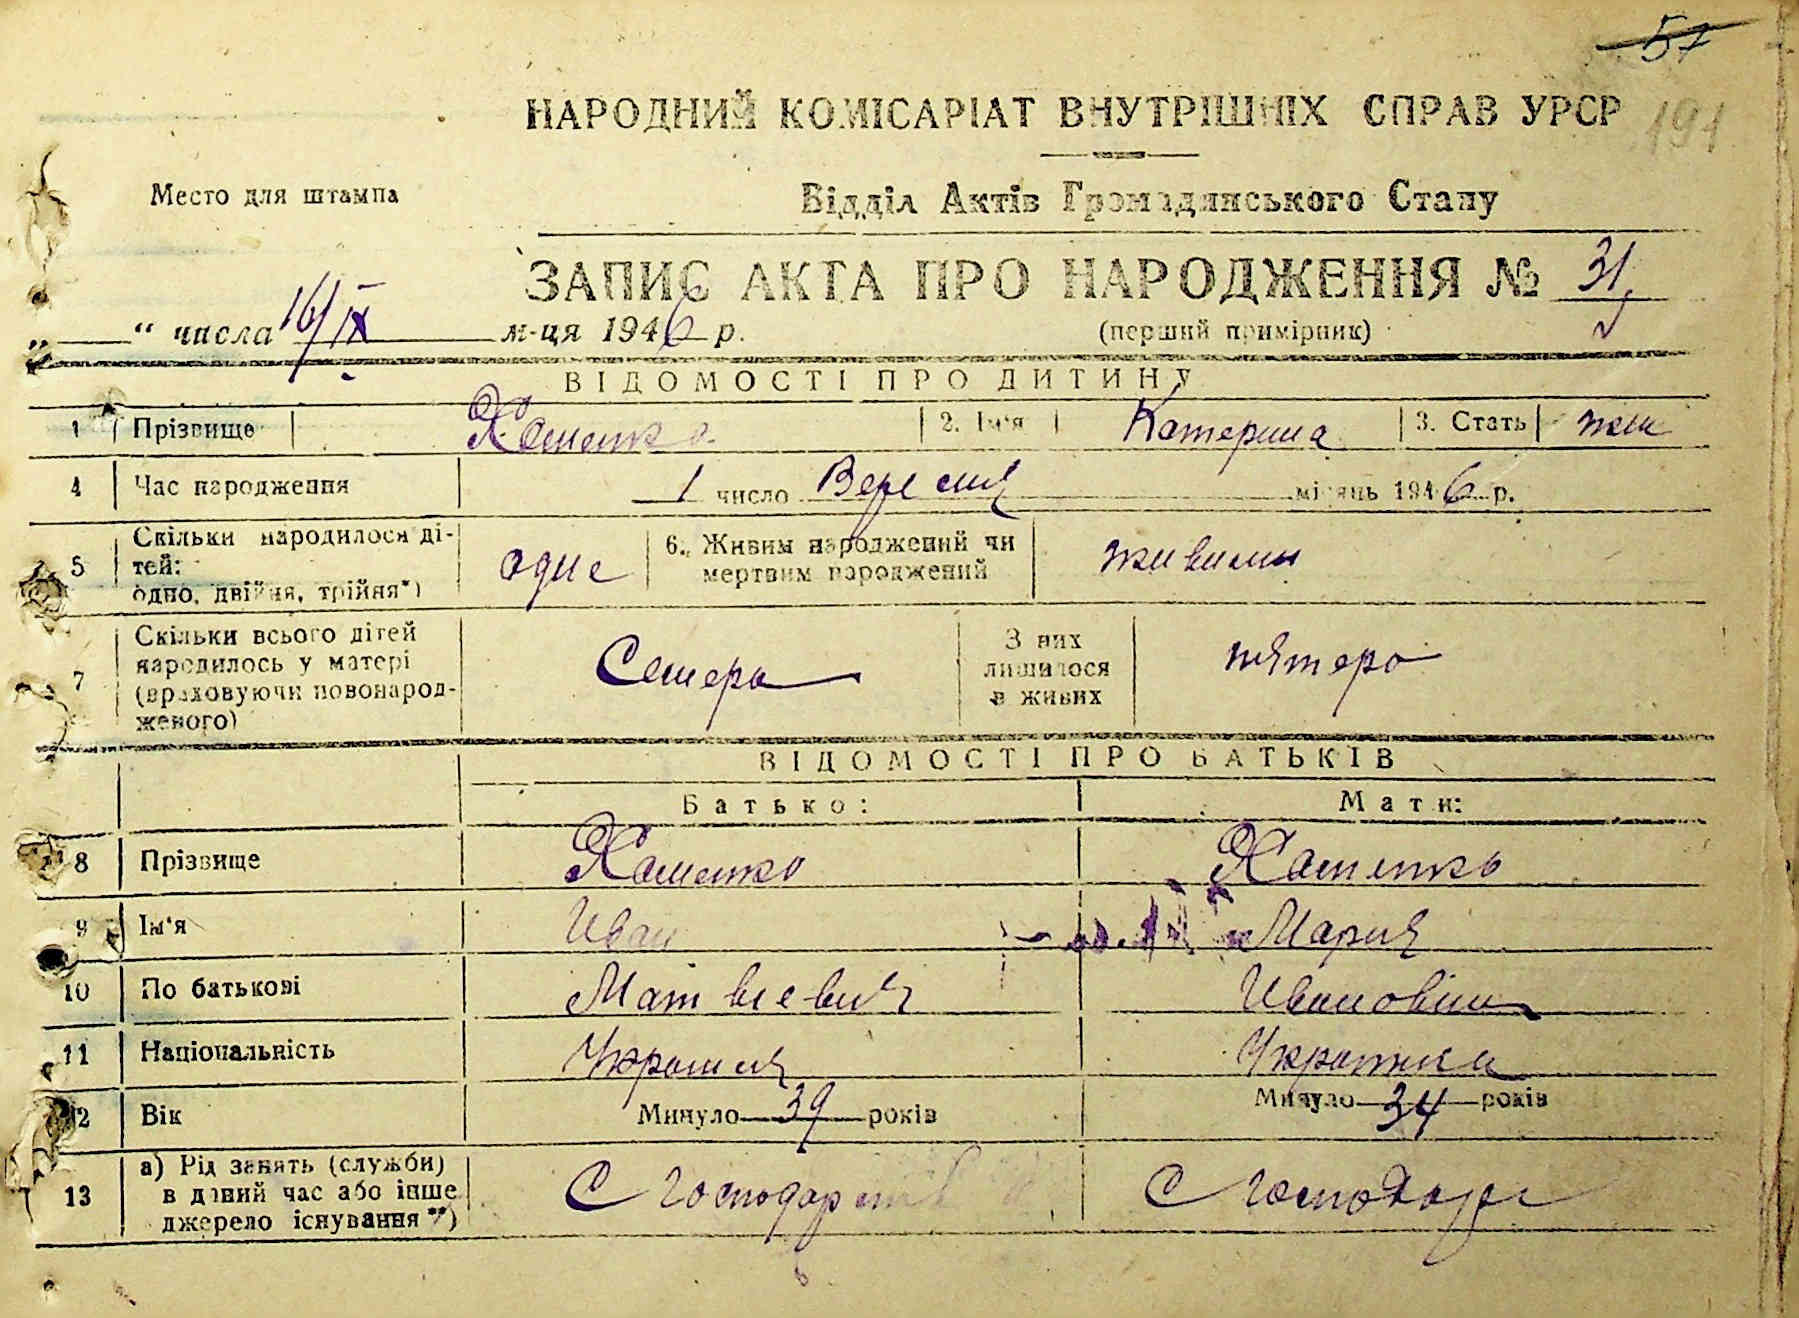 57
НАРОДНИЙ КОМІСАРІАТ ВНУТРІШНІХ СПРАВ УРСР 191
Место для штампа
Відділ Актів Громадянського Стану
ЗАПИС АКТА ПРО НАРОДЖЕННЯ № 31
„ “ числа 16/IX м-ця 1946 р.
(перший примірник)
ВІДОМОСТІ ПРО ДИТИНУ
1 Прізвище 2. Ім'я Катерина 3. Стать жін
4 Час народження 1 число Вересня місяць 1946 р.
5 Скільки народилося ді-
тей:
одно, двійня, трійня*) одне 6. Живим народжений чи
мертвим народжений живими
7 Скільки всього дітей
народилось у матері
(враховуючи новонарод-
женого) Семеро З них
лишилося
в живих пятеро
ВІДОМОСТІ ПРО БАТЬКІВ
Батько: Мати:
8 Прізвище
9 Ім'я Иван Мария
10 По батькові Матвіевич Ивановна
11 Національність Украинка
12 Вік Минуло 39 років Минуло 34 років
13 а) Рід занять (служби)
в даний час або інше
джерело існування**) С